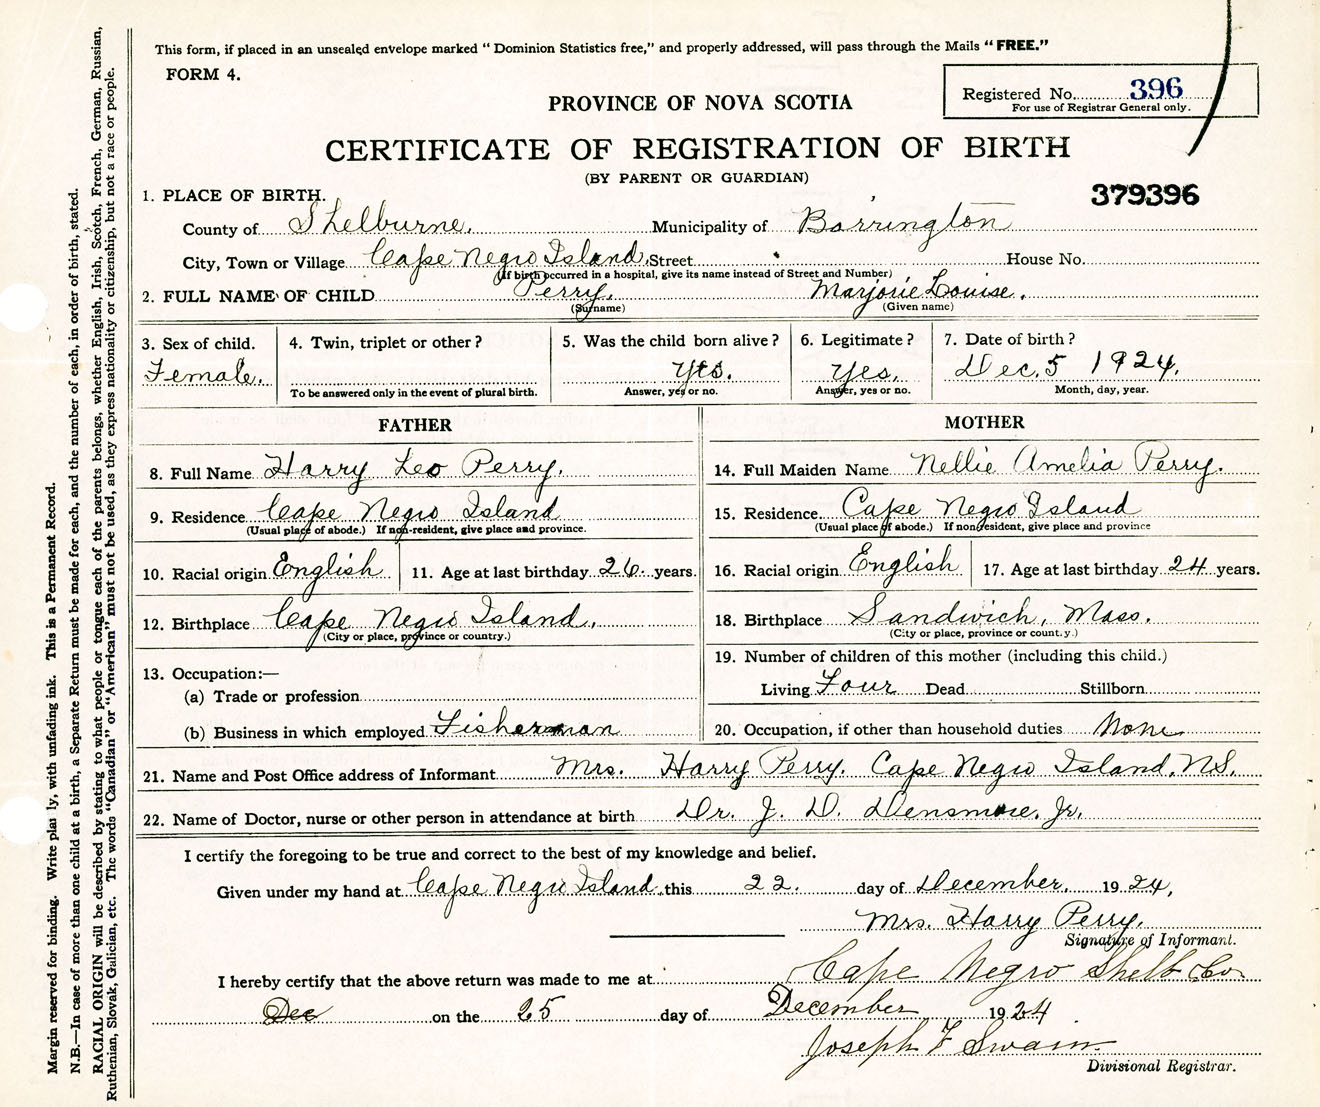 This form, if placed in an unsealed envelope marked "Dominion Statistics free," and properly addressed, will pass through the Mails "FREE."
FORM 4.
Registered No. 396
For use of Registrar General only.
PROVINCE OF NOVA SCOTIA
CERTIFICATE OF REGISTRATION OF BIRTH
(BY PARENT OR GUARDIAN)
379396
1. PLACE OF BIRTH.
County of Shelburne. Municipality of Barrington
City, Town or Village Cape Negro Island, Street House No.
(If birth occurred in a hospital, give its name instead of Street and Number)
2. FULL NAME OF CHILD Perry, Marjorie Louise.
(Surname) (Given name)
3. Sex of child. 4. Twin, triplet or other? 5. Was the child born alive? 6. Legitimate? 7. Date of birth?
Female. Yes. Yes. Dec, 5 1924.
To be answered only in the event of plural birth. Answer, yes or no. Answer, yes or no. Month, day, year.
FATHER
8. Full Name Harry Leo Perry.
9. Residence Cape Negro Island
(Usual place of abode.) If non-resident, give place and province.
10. Racial origin English 11. Age at last birthday 26 years.
12. Birthplace Cape Negro Island.
(City or place, province or country.)
13. Occupation:—
(a) Trade or profession
(b) Business in which employed Fisherman
MOTHER
14. Full Maiden Name Nellie Amelia Perry.
15. Residence. Cape Negro Island
(Usual place of abode.) If non-resident, give place and province
16. Racial origin English 17. Age at last birthday 24 years.
18. Birthplace Sandwich, Mass.
(City or place, province or county.)
19. Number of children of this mother (including this child.)
Living Four Dead Stillborn
20. Occupation, if other than household duties None
21. Name and Post Office address of Informant Mrs. Harry Perry. Cape Negro Island, N.S.
22. Name of Doctor, nurse or other person in attendance at birth Dr. J. D. Densmore, Jr.
I certify the foregoing to be true and correct to the best of my knowledge and belief.
Given under my hand at Cape Negro Island, this 22. day of December, 1924,
Mrs. Harry Perry.
Signature of Informant.
I hereby certify that the above return was made to me at Cape Negro Shelb Co
Dec on the 25 day of December 1924
Joseph F Swain
Divisional Registrar.
Margin reserved for binding. Write plainly, with unfading ink. This is a Permanent Record.
N.B.—In case of more than one child at a birth, a Separate Return must be made for each, and the number of each, in order of birth, stated.
RACIAL ORIGIN will be described by stating to what people or tongue each of the parents belongs, whether English, Irish, Scotch, French, German, Russian,
Ruthenian, Slovak, Galician, etc. The words "Canadian" or "American" must not be used, as they express nationality or citizenship, but not a race or people.